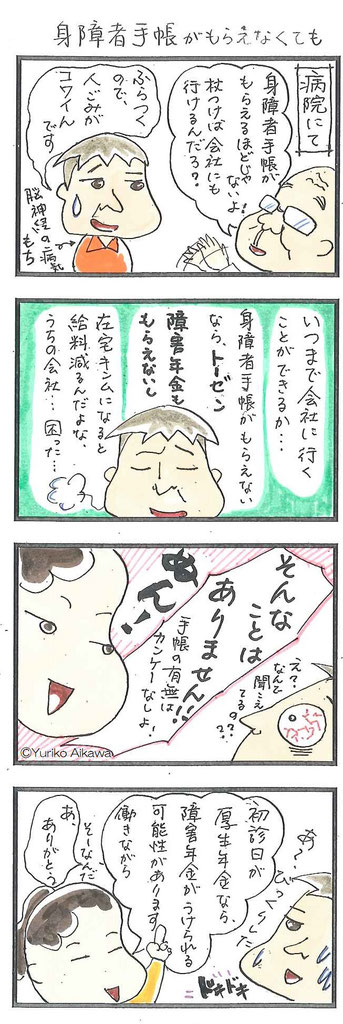 身障者手帳がもらえなくても
病院にて
身障者手帳が
もらえるほどじゃ
ないよ!
杖つけば会社にも
行けるんだろ?
ふらつく
ので、
人ごみが
コワイん
です
脳神経の病気
もち
いつまで会社に行く
ことができるか…
身障者手帳がもらえない
なら、トーゼン
障害年金も
もらえないし
在宅キンムになると
給料減るんだよな、
うちの会社…困った…
そんな
ことは
ありません!!
手帳の有無は
カンケーなしょ!
え??
なんで
聞こえ
てるの??
©Yuriko Aikawa
初診日が
厚生年金なら、
障害年金がうけられる
可能性があります
働きながら
あ〜
びっくりした
ドキドキ
そーなんだ
あ、
ありがとう